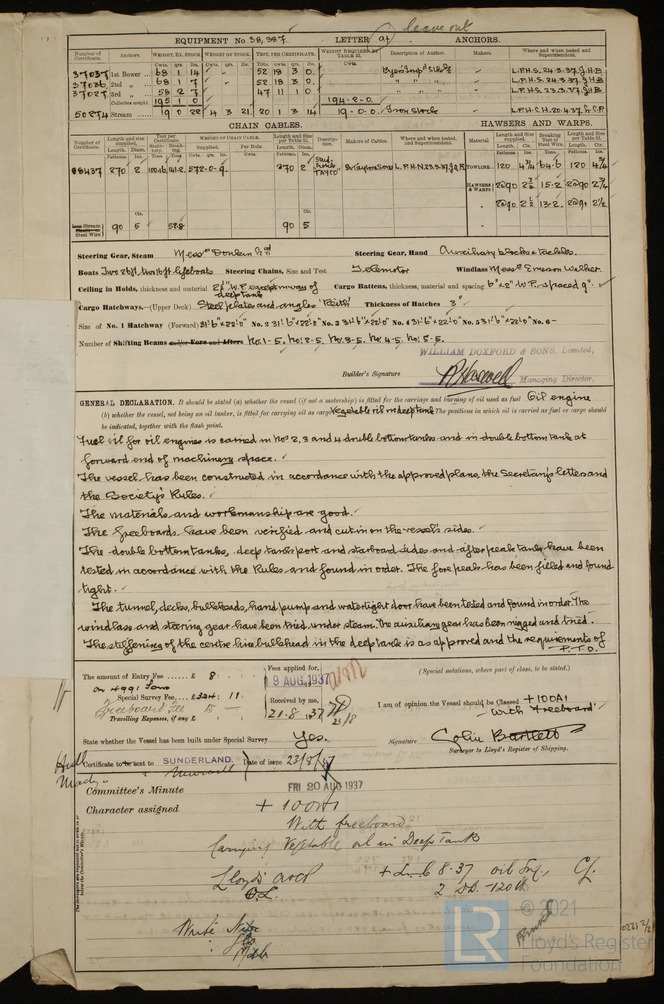 leave out
EQUIPMENT No 38,387. LETTER at. ANCHORS.
Number of Certificate. Anchors. WEIGHT, EX. STOCK. WEIGHT OF STOCK. TEST, PER CERTIFICATE. WEIGHT REQUIRED BY TABLE 31. Description of Anchor. Makers. Where and when tested and Superintendent.
37037 1st Bower 68 1 14 52 18 3 0 L.P.H.S. 24.3.37. J.H.B.
37036 2nd " 68 1 7 52 18 3 0 " " " L.P.H.S. 24.3.37. J.H.B.
37027 3rd " 58 2 7 47 11 1 0 " " " L.P.H.S. 23.3.37. J.H.B.
Collective weight. 195 1 0 194-2-0.
50274 Stream 19 0 22 4 3 21 20 1 3 14 19-0-0. Iron Stock L.P.H.C.H. 20.4.37.
CHAIN CABLES. HAWSERS AND WARPS.
Number of Certificate. Length and size supplied. Test per Certificate. WEIGHT OF CHAIN CABLE. Length and Size per Table 31. Description. Makers of Cables. Where and when tested, and Superintendent. Material. Length and Size supplied. Breaking Test of Steel Wire. Length and Size per Table 31.
88437 270 2 572-0-9. 270 2 L.P.H.N. 23.3.37. TOWLINE 120 4¾ 64.6 120 4¾
HAWSERS & WARPS 2@90 2¾ 15.2 2@90 2¾
" 2@90 2½ 13.2. 2@90 2½
Iron Stream or Steel Wire 90 5 52.8 90 5
Steering Gear, Steam Messrs Donkin & Co Steering Gear, Hand Auxiliary blocks & tackles.
Boats Two 26ft, two 16ft lifeboats Steering Chains, Size and Test Telemotor Windlass Messrs Emerson Walker.
Ceiling in Holds, thickness and material 2½" W.P. except in way of deep tank Cargo Battens, thickness, material and spacing 6"x2" W.P. spaced 9".
Cargo Hatchways.—(Upper Deck) Steel plates and angles 'Keith' Thickness of Hatches 3"
Size of No. 1 Hatchway (Forward) 31'6"x22'0" No. 2 31'6"x22'0" No. 3 31'6"x22'0" No. 4 31'6"x22'0" No. 5 31'6"x22'0" No. 6 -
Number of Shifting Beams and/or Fore and Afters No: 1-5, No: 2-5, No: 3-5, No: 4-5, No: 5-5.
WILLIAM DOXFORD & SONS, Limited,
Builder's Signature Managing Director.
GENERAL DECLARATION. It should be stated (a) whether the vessel (if not a motorship) is fitted for the carriage and burning of oil used as fuel Oil engine
(b) whether the vessel, not being an oil tanker, is fitted for carrying oil as cargo Vegetable oil in deep tank. The positions in which oil is carried as fuel or cargo should
be indicated, together with the flash point.
Fuel oil for oil engines is carried in Nos 2, 3 and 4 double bottom tanks and in double bottom tank at
forward end of machinery space.
The vessel has been constructed in accordance with the approved plans, the Secretary's letters and
the Society's Rules.
The materials and workmanship are good.
The freeboards have been verified and cut in on the vessel's sides.
The double bottom tanks, deep tanks port and starboard sides and after peak tank have been
tested in accordance with the Rules and found in order. The fore peak has been filled and found
tight.
The tunnel, decks, bulkheads, hand pumps and watertight door have been tested and found in order. The
windlass and steering gear have been tried under steam. The auxiliary gear has been rigged and tried.
The stiffening of the centre line bulkhead in the deep tank is as approved and the requirements of
P.T.O.
The amount of Entry Fee £ 8 Fees applied for, (Special notations, where part of class, to be stated.)
on 4991 Tons 19 AUG 1937
Special Survey Fee £234 : 11 Received by me, I am of opinion the Vessel should be Classed +100A1
Freeboard Fee 15 — 21.8.1937 With Freeboard
Travelling Expenses, if any £ 23/8
State whether the Vessel has been built under Special Survey Yes. Signature Colin Bartlett
Surveyor to Lloyd's Register of Shipping.
Certificate to be sent to SUNDERLAND. Date of issue 23/8/37
Hull
Committee's Minute FRI 20 AUG 1937
Character assigned +100A1
With freeboard
Carrying Vegetable oil in Deep Tank
Lloyd's A & CP + LMC 8.37 oil Eng. CL.
O.L. 2 DB - 120 lb
Write
© 2021
LR Lloyd's Register
Foundation